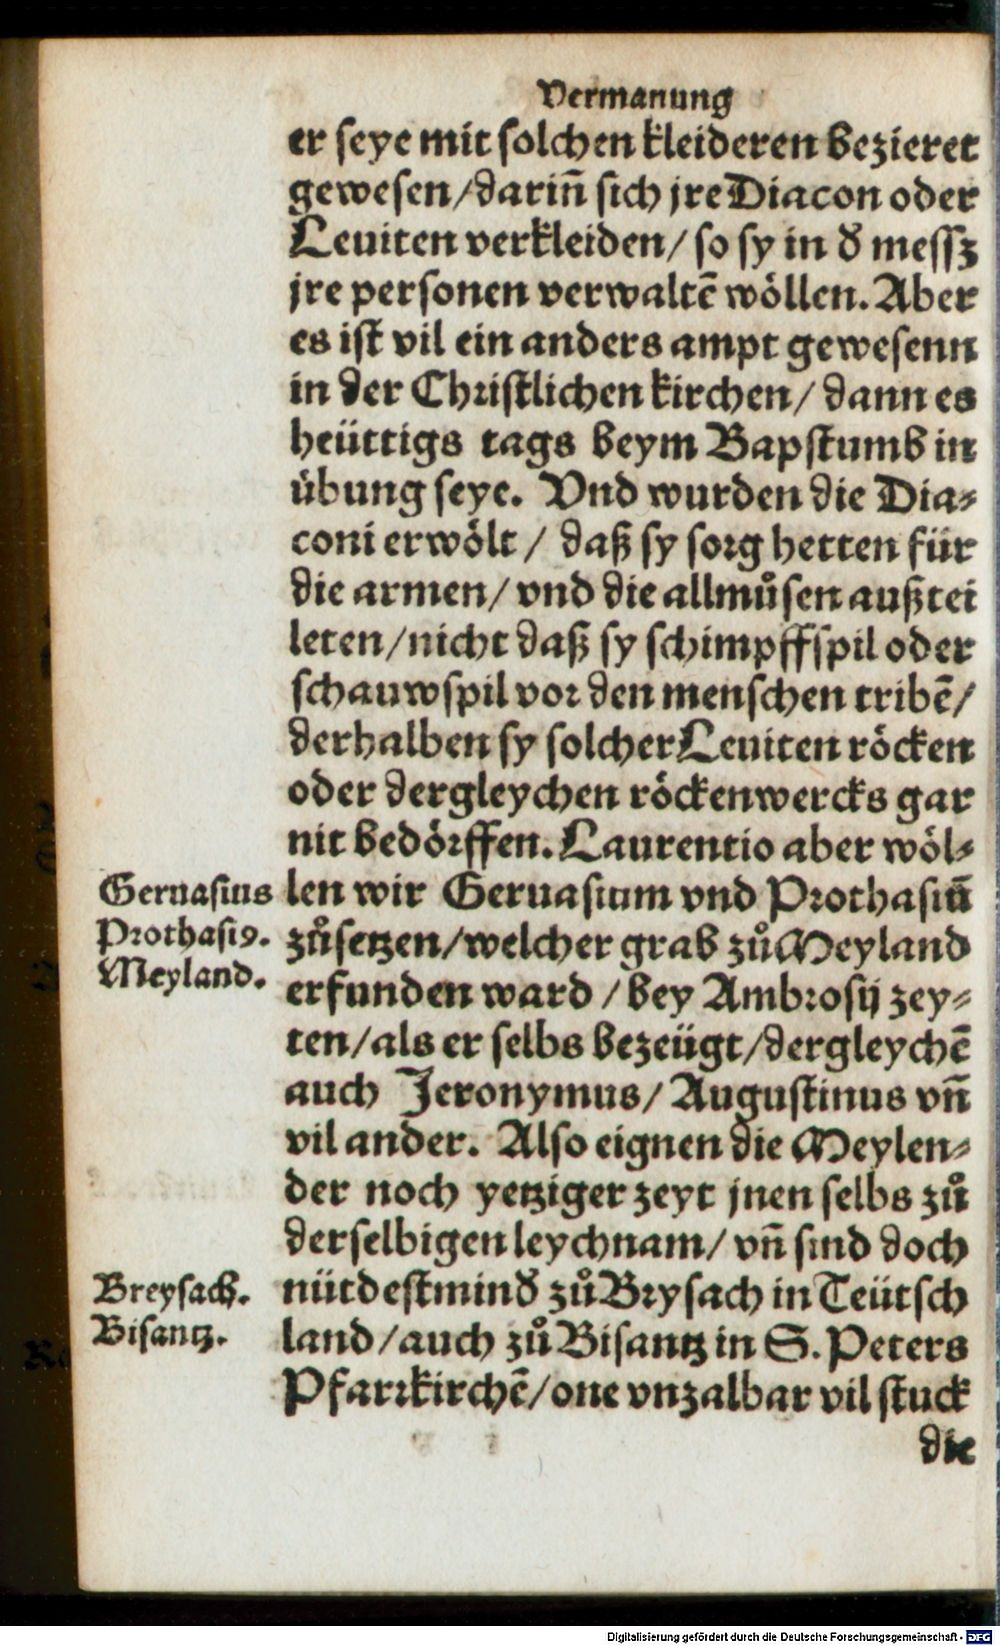 Vermanung
er seye mit solchen kleideren bezieret
gewesen/darin̄ sich jre Diacon oder
Leuiten verkleiden/ so sy in ď messz
jre personen verwaltē wöllen. Aber
es ist vil ein anders ampt gewesenn
in der Christlichen kirchen/ dann es
heüttigs tags beym Bapstumb in
übung seye. Vnd wurden die Dia-
coni erwölt / daß sy sorg hetten für
die armen/ vnd die allmůsen außtei
leten/nicht daß sy schimpffspil oder
schauwspil vor den menschen tribē/
derhalben sy solcher Leuiten röcken
oder dergleychen röckenwercks gar
nit bedörffen. Laurentio aber wöl-
Geruasius
Prothasiꝰ.
Meyland.
len wir Geruasium vnd Prothasiū
zůsetzen/welcher grab zů Meyland
erfunden ward / bey Ambrosij zey-
ten/als er selbs bezeügt/dergleychē
auch Jeronymus/ Augustinus vn̄
vil ander. Also eignen die Meylen-
der noch yetziger zeyt jnen selbs zů
derselbigen leychnam/ vn̄ sind doch
Breysach.
Bisantz.
nüt destminď zů Brysach in Teütsch
land/auch zů Bisantz in S. Peters
Pfarrkirchē/one vnzalbar vil stuck
die
Digitalisierung gefördert durch die Deutsche Forschungsgemeinschaft - DFG